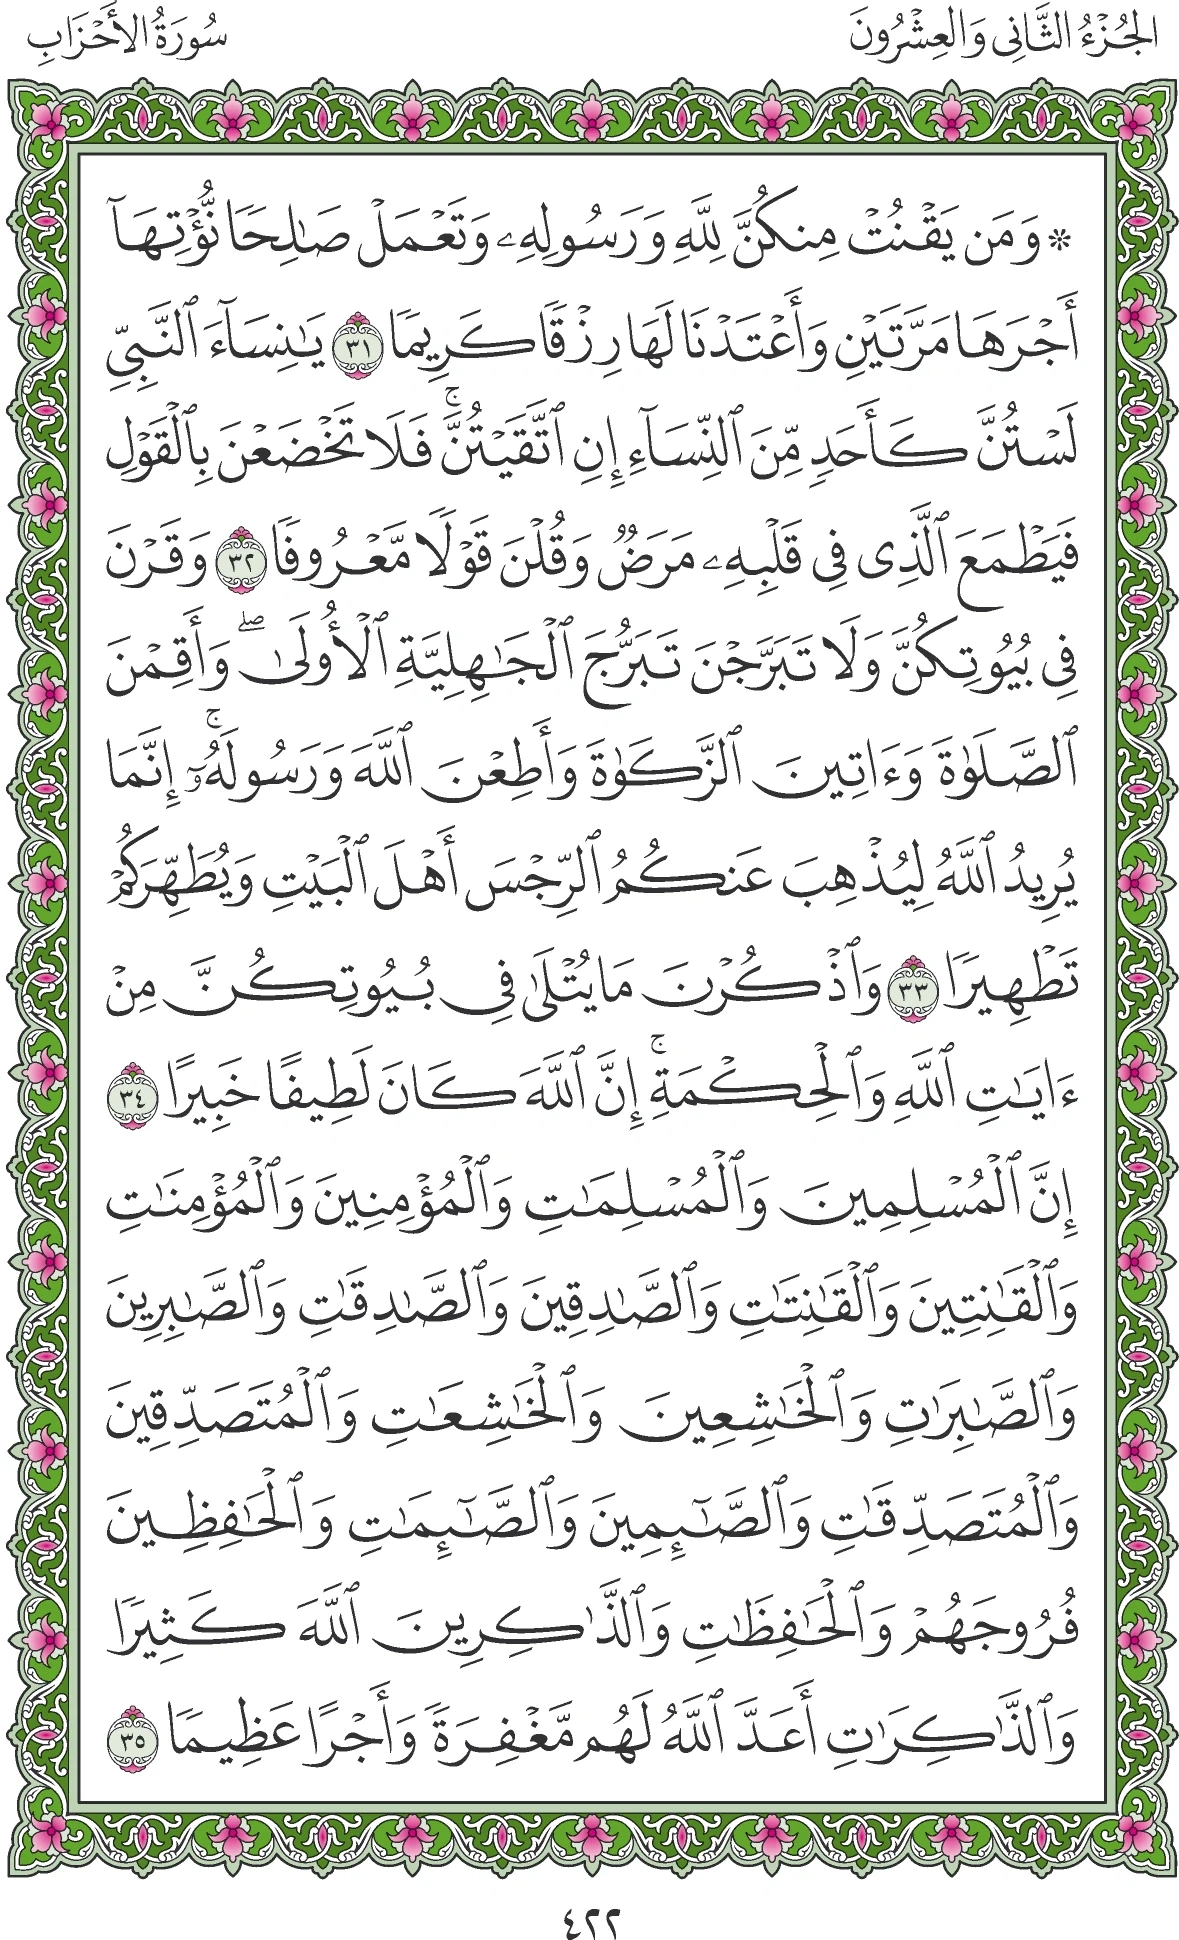 الجُزْءُ الثَّانِي وَالعِشْرُونَ
سُورَةُ الأَحْزَابِ
۞ وَمَن يَقْنُتْ مِنكُنَّ لِلَّهِ وَرَسُولِهِۦ وَتَعْمَلْ صَٰلِحًا نُّؤْتِهَآ
أَجْرَهَا مَرَّتَيْنِ وَأَعْتَدْنَا لَهَا رِزْقًا كَرِيمًا ٣١ يَٰنِسَآءَ ٱلنَّبِيِّ
لَسْتُنَّ كَأَحَدٍ مِّنَ ٱلنِّسَآءِ إِنِ ٱتَّقَيْتُنَّۚ فَلَا تَخْضَعْنَ بِٱلْقَوْلِ
فَيَطْمَعَ ٱلَّذِى فِى قَلْبِهِۦ مَرَضٌ وَقُلْنَ قَوْلًا مَّعْرُوفًا ٣٢ وَقَرْنَ
فِى بُيُوتِكُنَّ وَلَا تَبَرَّجْنَ تَبَرُّجَ ٱلْجَٰهِلِيَّةِ ٱلْأُولَىٰۖ وَأَقِمْنَ
ٱلصَّلَوٰةَ وَءَاتِينَ ٱلزَّكَوٰةَ وَأَطِعْنَ ٱللَّهَ وَرَسُولَهُۥٓۚ إِنَّمَا
يُرِيدُ ٱللَّهُ لِيُذْهِبَ عَنكُمُ ٱلرِّجْسَ أَهْلَ ٱلْبَيْتِ وَيُطَهِّرَكُمْ
تَطْهِيرًا ٣٣ وَٱذْكُرْنَ مَا يُتْلَىٰ فِى بُيُوتِكُنَّ مِنْ
ءَايَٰتِ ٱللَّهِ وَٱلْحِكْمَةِۚ إِنَّ ٱللَّهَ كَانَ لَطِيفًا خَبِيرًا ٣٤
إِنَّ ٱلْمُسْلِمِينَ وَٱلْمُسْلِمَٰتِ وَٱلْمُؤْمِنِينَ وَٱلْمُؤْمِنَٰتِ
وَٱلْقَٰنِتِينَ وَٱلْقَٰنِتَٰتِ وَٱلصَّٰدِقِينَ وَٱلصَّٰدِقَٰتِ وَٱلصَّٰبِرِينَ
وَٱلصَّٰبِرَٰتِ وَٱلْخَٰشِعِينَ وَٱلْخَٰشِعَٰتِ وَٱلْمُتَصَدِّقِينَ
وَٱلْمُتَصَدِّقَٰتِ وَٱلصَّٰٓئِمِينَ وَٱلصَّٰٓئِمَٰتِ وَٱلْحَٰفِظِينَ
فُرُوجَهُمْ وَٱلْحَٰفِظَٰتِ وَٱلذَّٰكِرِينَ ٱللَّهَ كَثِيرًا
وَٱلذَّٰكِرَٰتِ أَعَدَّ ٱللَّهُ لَهُم مَّغْفِرَةً وَأَجْرًا عَظِيمًا ٣٥
٤٢٢